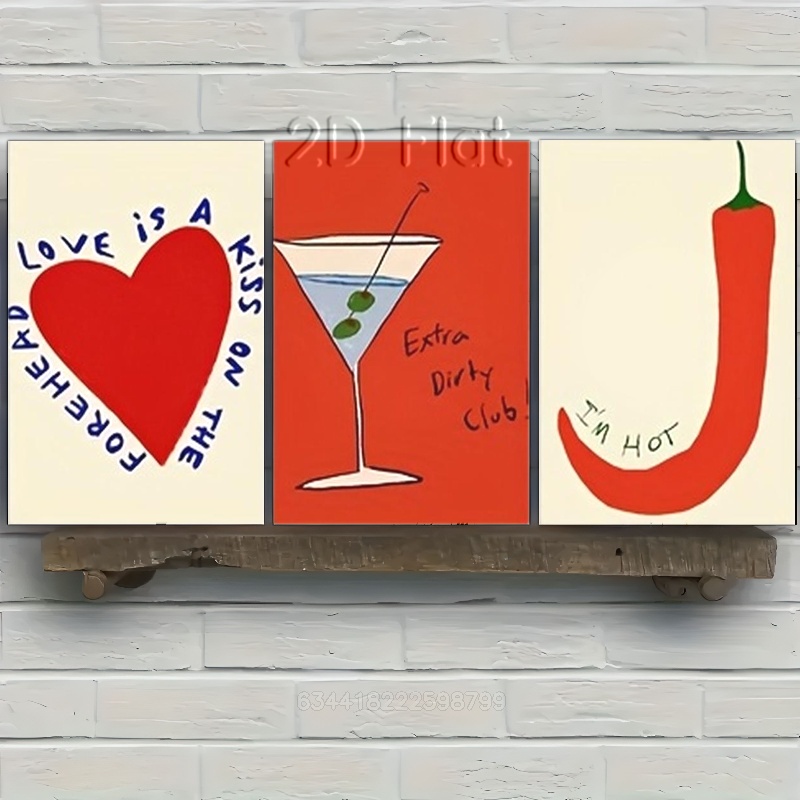 2D Flat
LOVE iS A KiSS ON THE FOREHEAD
Extra
Dirty
Club!
I'M HOT
634418222598799